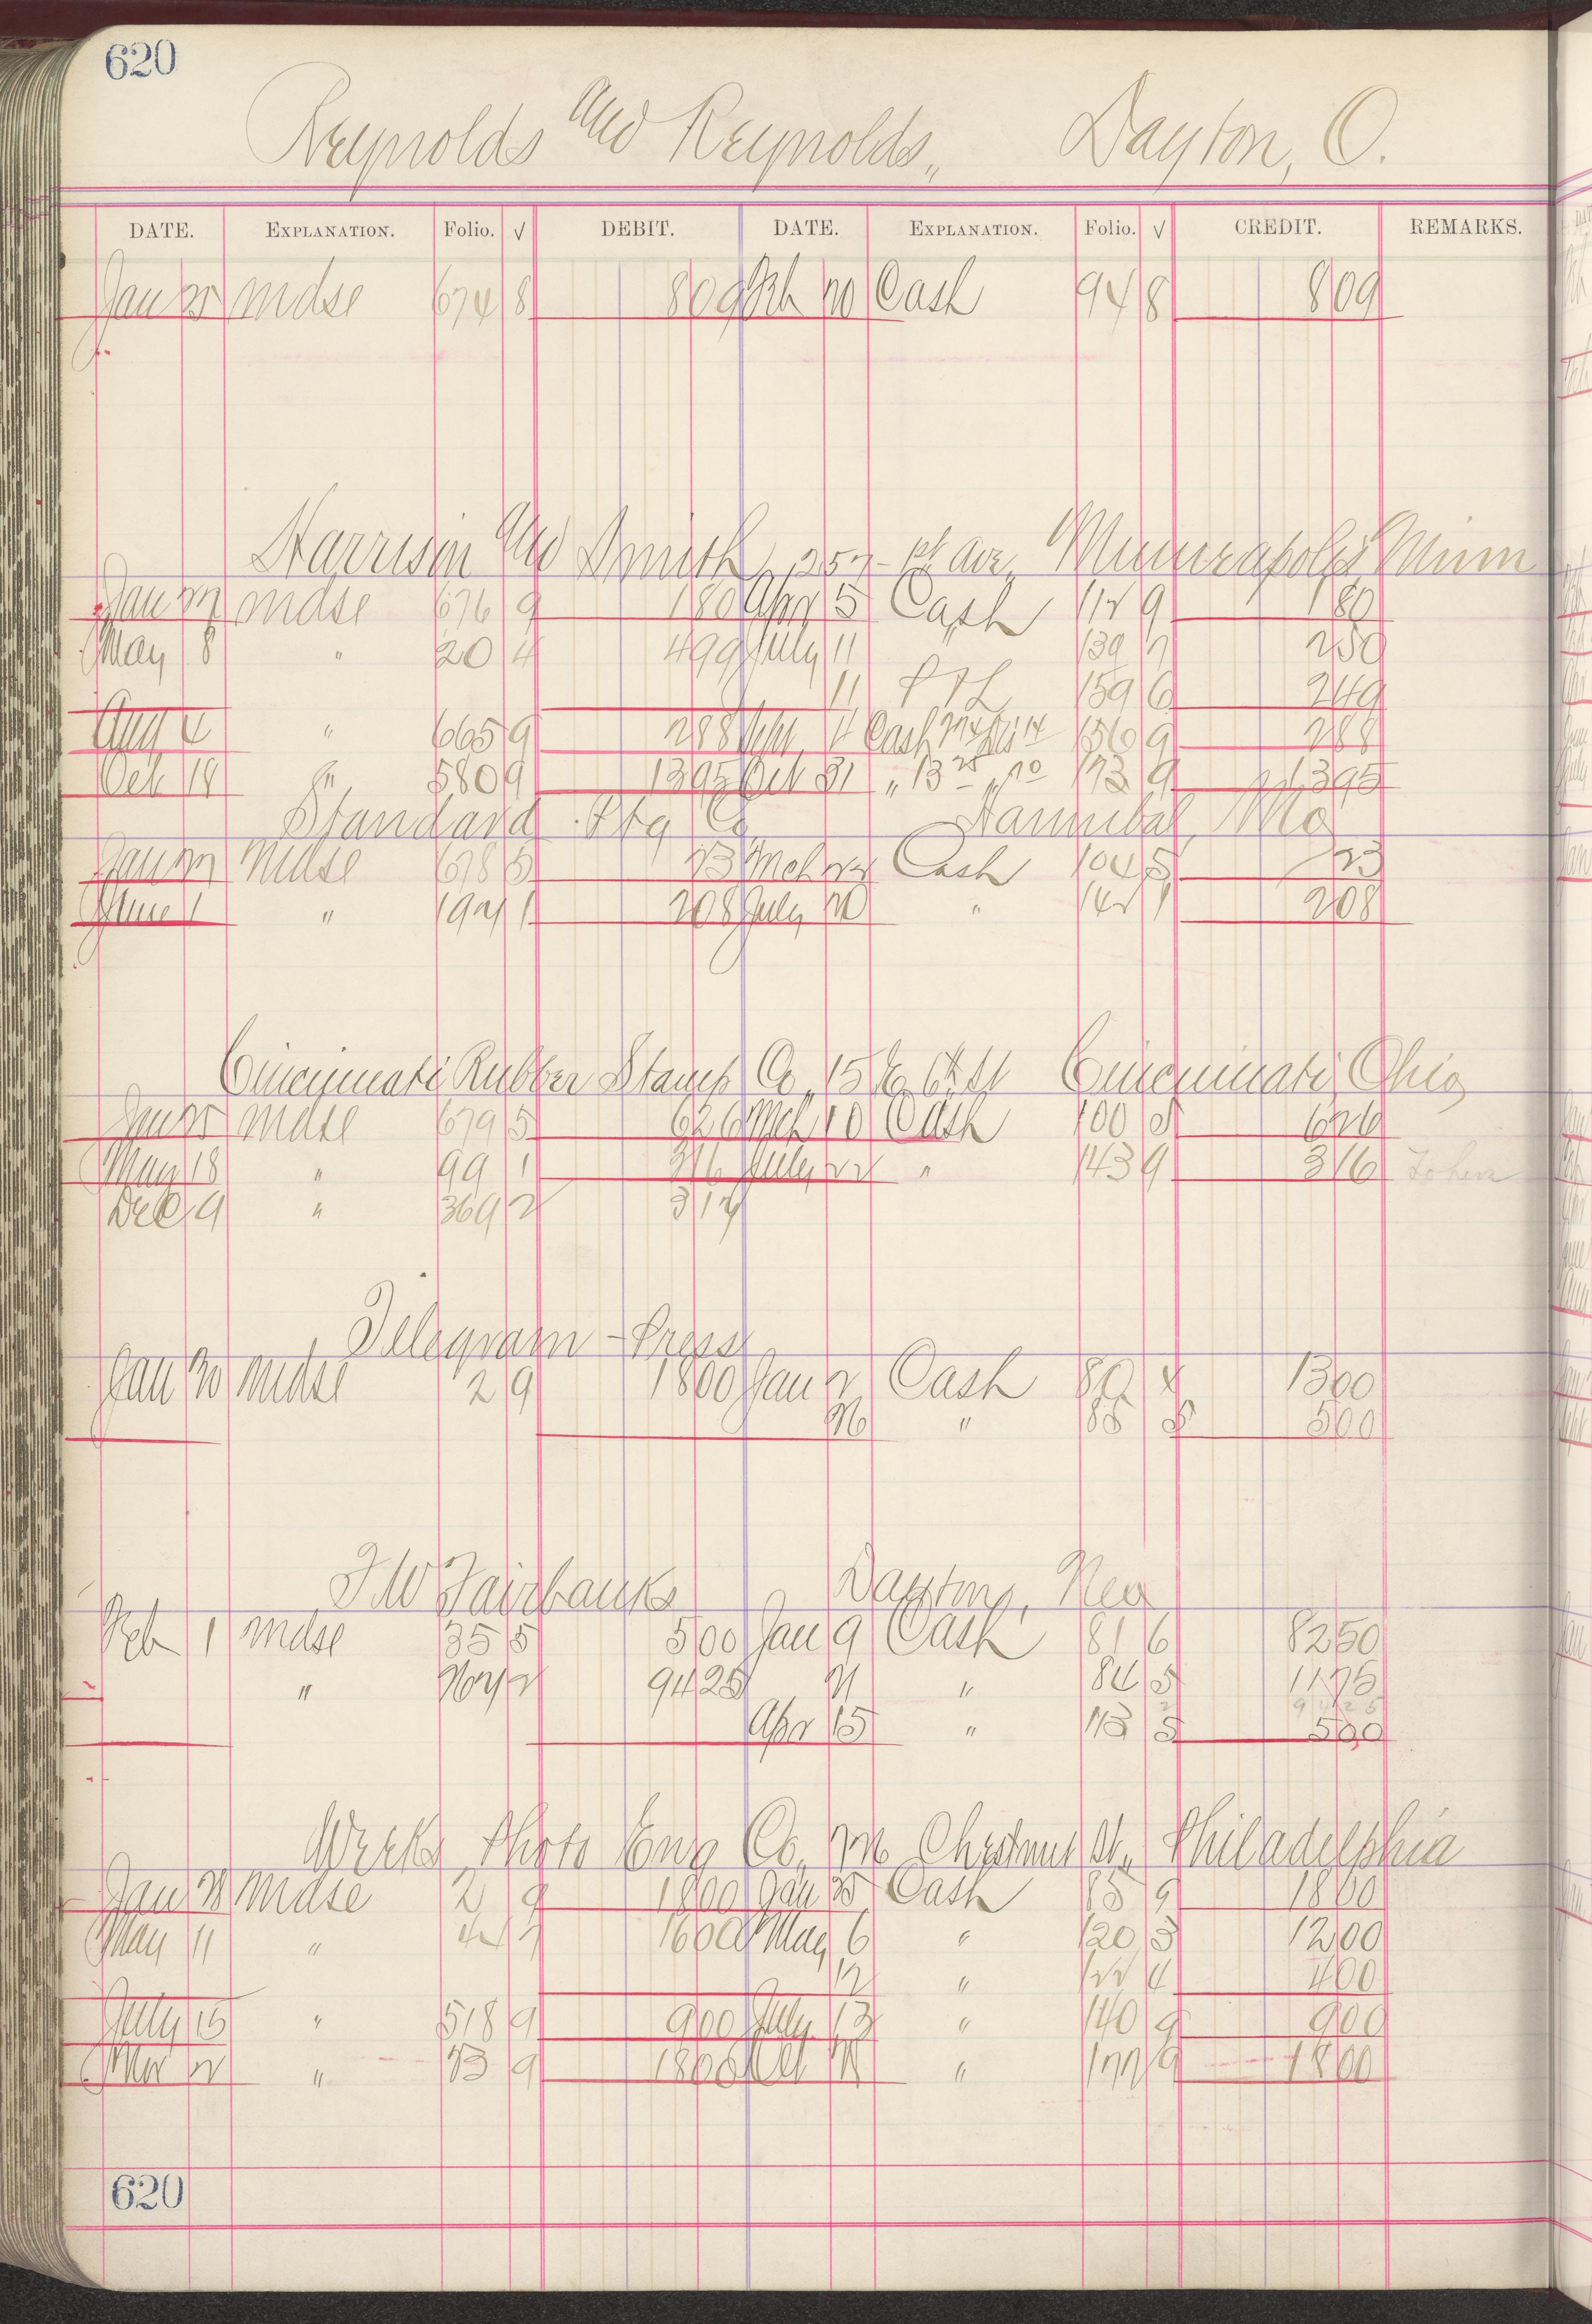 620
Reynolds and Reynolds,, Dayton, O.
DATE. EXPLANATION. Folio. √ DEBIT. DATE. EXPLANATION. Folio. √ CREDIT. REMARKS.
Jan 25 Mdse 674 8 809 Feb 20 Cash 94 8 809
Harrison and Smith, 257- 1st Ave, Minneapolis Minn
Jan 27 Mdse 676 9 180 Apr 5 Cash 112 9 180
May 8 " 20 4 499 July 11 " 139 7 250
11 P & L 159 6 249
Aug 4 " 665 9 288 Sept Cash 156 9 288
Oct 19 " 580 9 1395 Oct 31 " 173 9 1395
Standard Ptg Co Hannibal, Mo
Jan 27 Mdse 678 5 73 Mch 22 Cash 104 5 73
June 1 " 197 1 208 July 20 " 142 1 208
Cincinnati Rubber Stamp Co, 15 E 6th St Cincinnati, Ohio
Jan 25 Mdse 679 5 626 Mch 10 Cash 100 5 626
May 18 " 99 1 316 July 22 " 143 9 316
Dec 9 " 369 2 317
Telegram-Press
Jan 20 Mdse 2 9 1800 Jan 2 Cash 80 4 1300
26 " 85 5 500
F W Fairbanks Dayton, Nev
Feb 1 Mdse 35 5 500 Jan 9 Cash 81 6 8250
" 2 9425 21 " 84 5 1175
9425
Apr 15 " 113 5 500
Weeks Photo Eng Co, Chestnut St., Philadelphia
Jan 21 Mdse 2 9 1800 Jan 25 Cash 85 9 1800
May 11 " 42 7 1600 May 6 " 120 3 1200
12 " 122 4 400
July 15 " 518 9 900 July 13 " 140 9 900
" 73 9 1800 Oct " 177 9 1800
620